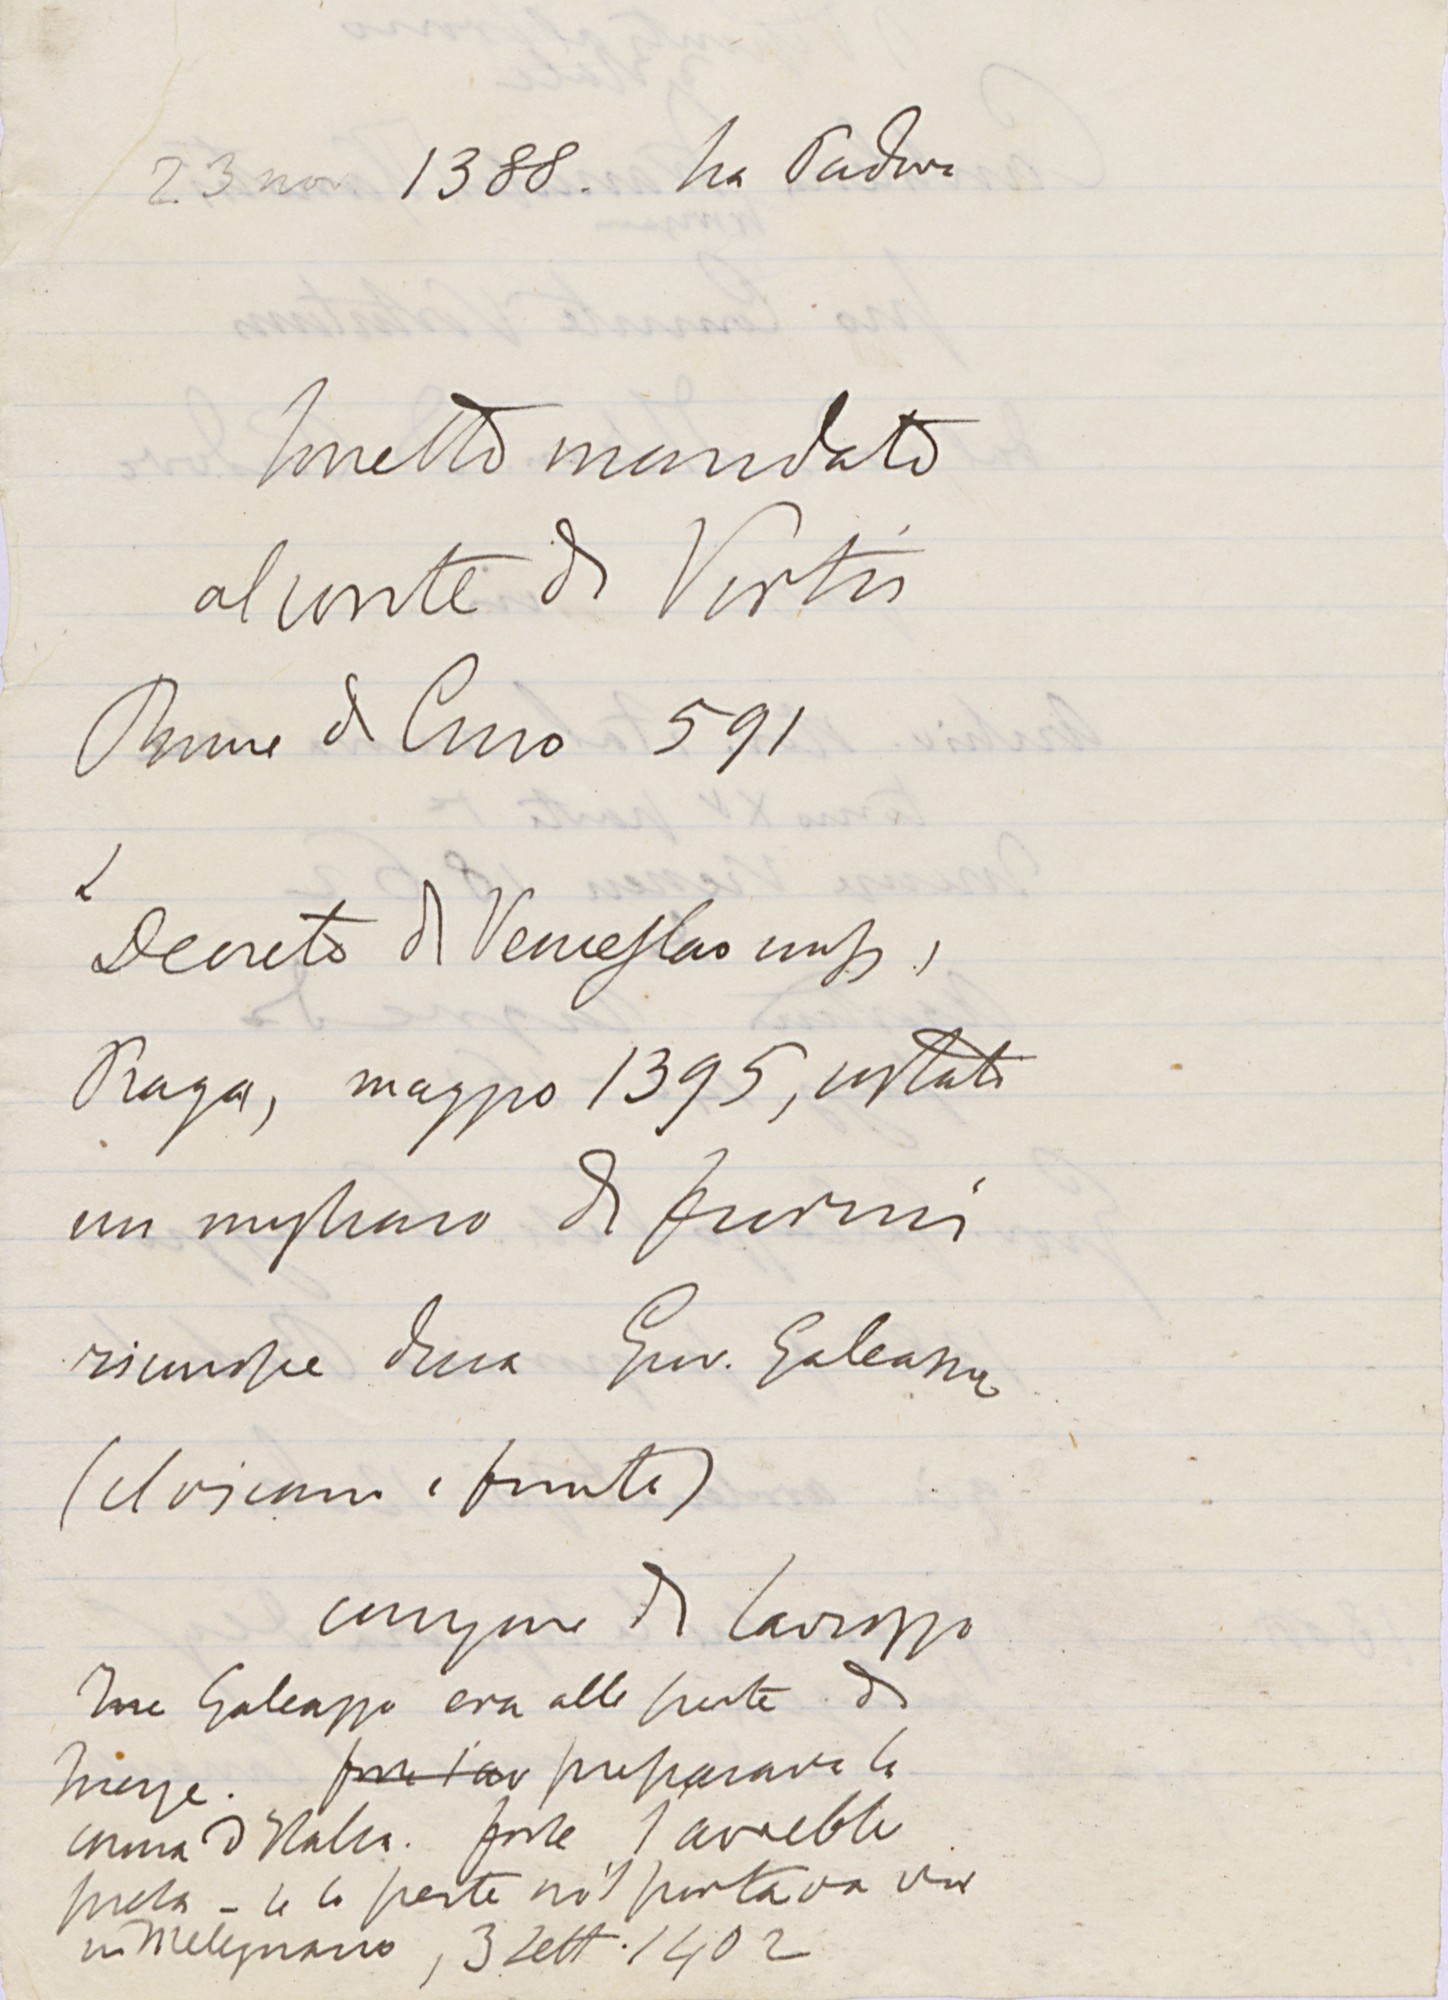 23 nov 1388. ha Padova
sonetto mandato
al conte di Virtù
Rime di Cino 591
Decreto di Venceslao imp,
Praga, maggio 1395, costato
un migliaro di fiorini
riconosce duca Giov. Galeazzo
(il biscione e
canzone di Saviozzo
Galeazzo era alle porte di
Firenze. preparava la
corona d'Italia. forse l'avrebbe
presa – se la peste no'l portava via
in Melegnano, 3 sett. 1402